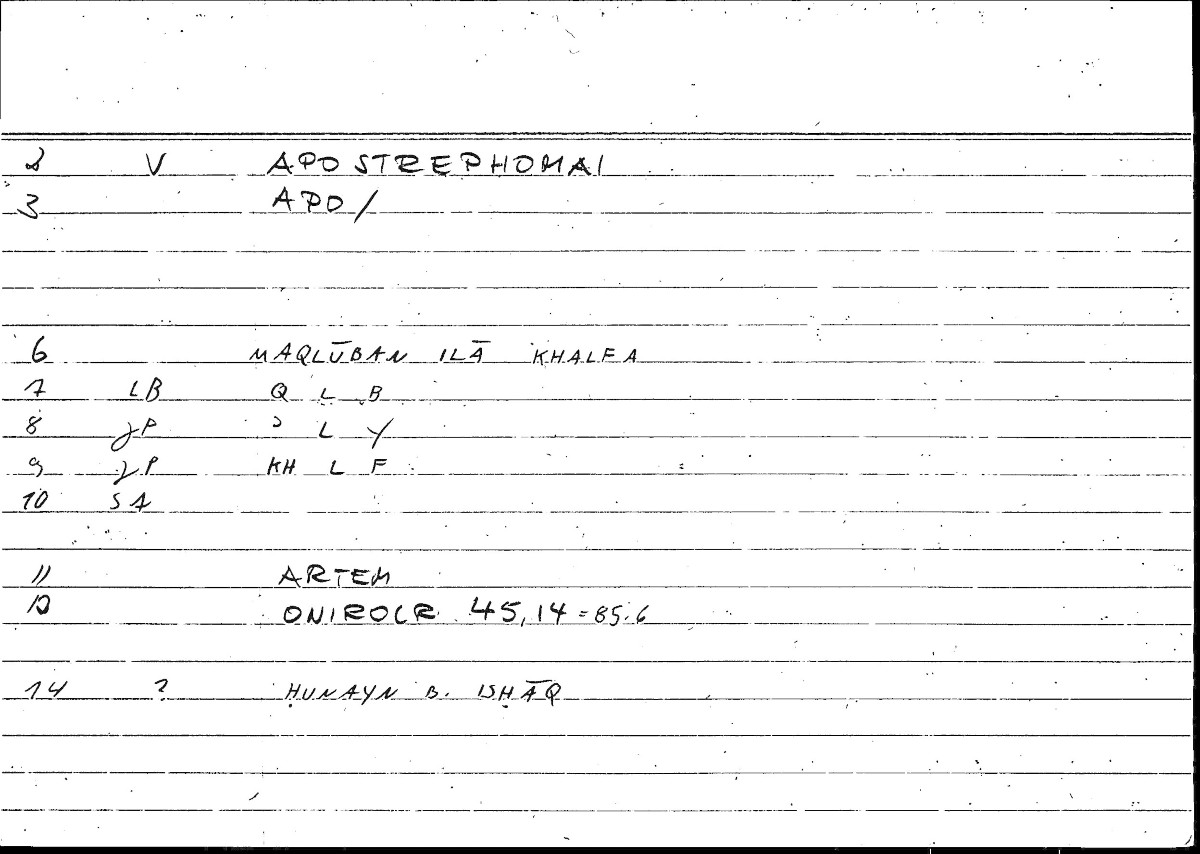 2 V APOSTREPHOMAI
3 APO/
6 MAQLŪBAN ILĀ KHALFA
7 LB Q L B
8 JP ʾ L Y
9 JP KH L F
10 SA
11 ARTEM
12 ONIROCR 45,14 = 85.6
14 ? ḤUNAYN B. ISḤĀQ